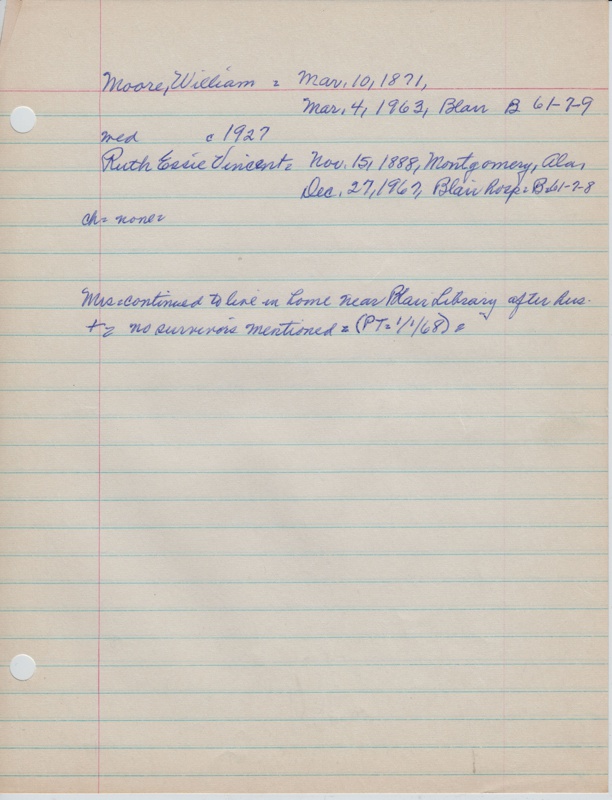 Moore, William = Mar. 10, 1871,
Mar. 4, 1963, Blair B 61-7-9
wed c 1927
Ruth Essie Vincent = Nov. 15, 1888, Montgomery, Ala,
Dec. 27, 1967, Blair Hosp = B 61-7-8
ch = none =
Mrs = continued to live in home near Blair Library after hus.
+ = no survivors mentioned = (PT = 1/1/68) =